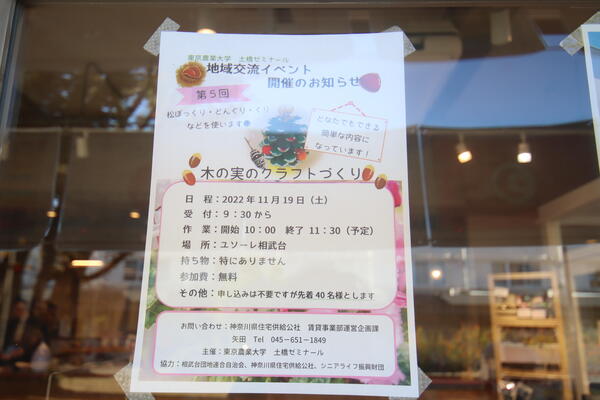 東京農業大学 土橋ゼミナール
地域交流イベント
開催のお知らせ
第5回
松ぼっくり・どんぐり・くり
などを使います
どなたでもできる
簡単な内容に
なっています!
木の実のクラフトづくり
日 程:2022年11月19日(土)
受 付:9:30から
作 業:開始 10:00 終了 11:30(予定)
場 所:ユソーレ相武台
持ち物:特にありません
参加費:無料
その他:申し込みは不要ですが先着40名様とします
お問い合わせ:神奈川県住宅供給公社 賃貸事業部運営企画課
矢田 Tel 045-651-1849
主催:東京農業大学 土橋ゼミナール
協力:相武台団地連合自治会、神奈川県住宅供給公社、シニアライフ振興財団